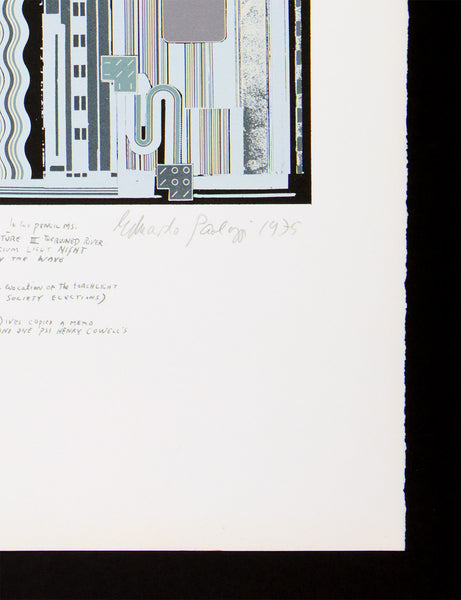 PENCIL MS.
TURE III THE RUINED RIVER
LIGHT NIGHT
THE WAVE
Eduardo Paolozzi 1975
EVOCATION OF THE TORCHLIGHT
SOCIETY ELECTIONS)
IVES COPIED A MEMO
AND ONE PSI HENRY COWELL'S